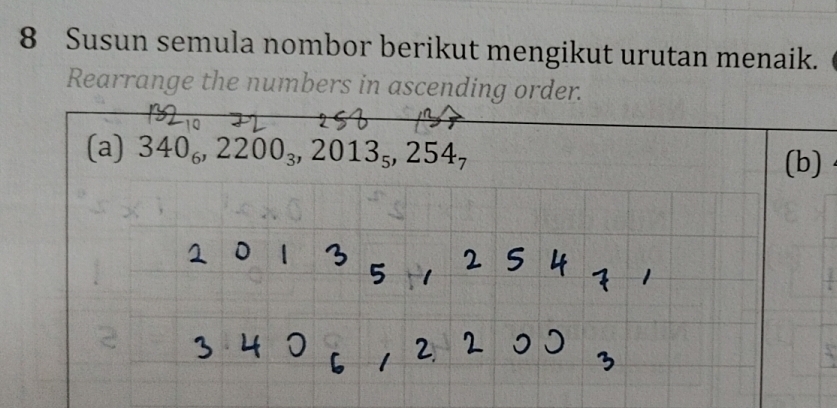 8 Susun semula nombor berikut mengikut urutan menaik.
Rearrange the numbers in ascending order.
132₁₀ 72 258 137
(a) 340₆, 2200₃, 2013₅, 254₇
(b)
2013₅, 254₇,
340₆, 2200₃